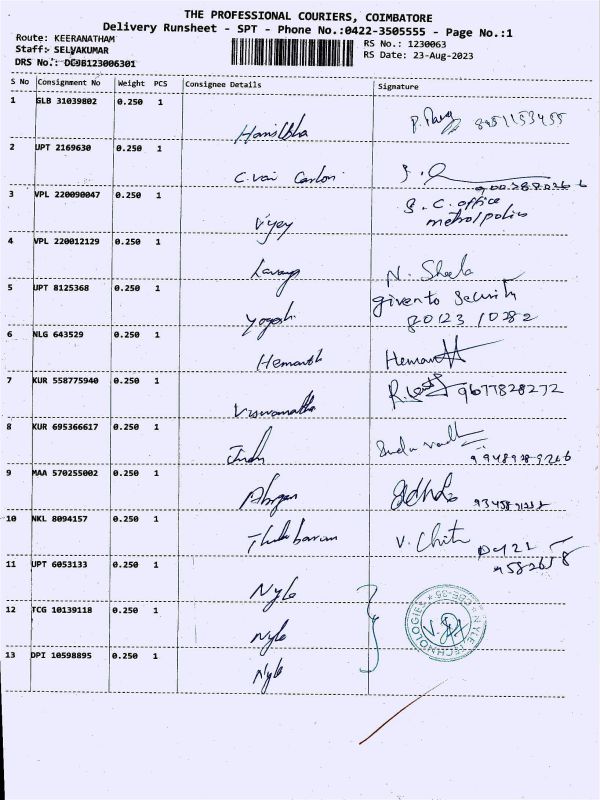 THE PROFESSIONAL COURIERS, COIMBATORE
Delivery Runsheet - SPT - Phone No.:0422-3505555 - Page No.:1
Route: KEERANATHAM
RS No.: 1230063
Staff: SELVAKUMAR
RS Date: 23-Aug-2023
DRS No.:
S No Consignment No Weight PCS Consignee Details Signature
1 GLB 31039802 0.250 1
2 UPT 2169630 0.250 1
3 VPL 220090047 0.250 1 Vijey S.C. office
4 VPL 220012129 0.250 1 Lavanya N. Sheela
5 UPT 8125368 0.250 1 Yogesh given to Security
80123 10282
6 NLG 643529 0.250 1 Hemanth Hemanth
7 KUR 558775940 0.250 1 Viswanatha 9677828272
8 KUR 695366617 0.250 1
9 MAA 570255002 0.250 1
10 NKL 8094157 0.250 1 V. Chitra
11 UPT 6053133 0.250 1 Nyle
12 TCG 10139118 0.250 1 Nyle
13 DPI 10598895 0.250 1 Nyle
NYLE TECHNOLOGIES CBE-35